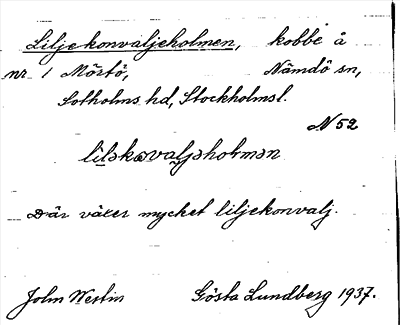 Liljekonvaljeholmen, kobbe å
nr 1 Mörtö, Nämdö sn,
Sotholms hd, Stockholmsl.
N 52
liləkəvaljəholmən
Där växer mycket liljekonvalj.
John Westin Gösta Lundberg 1937.